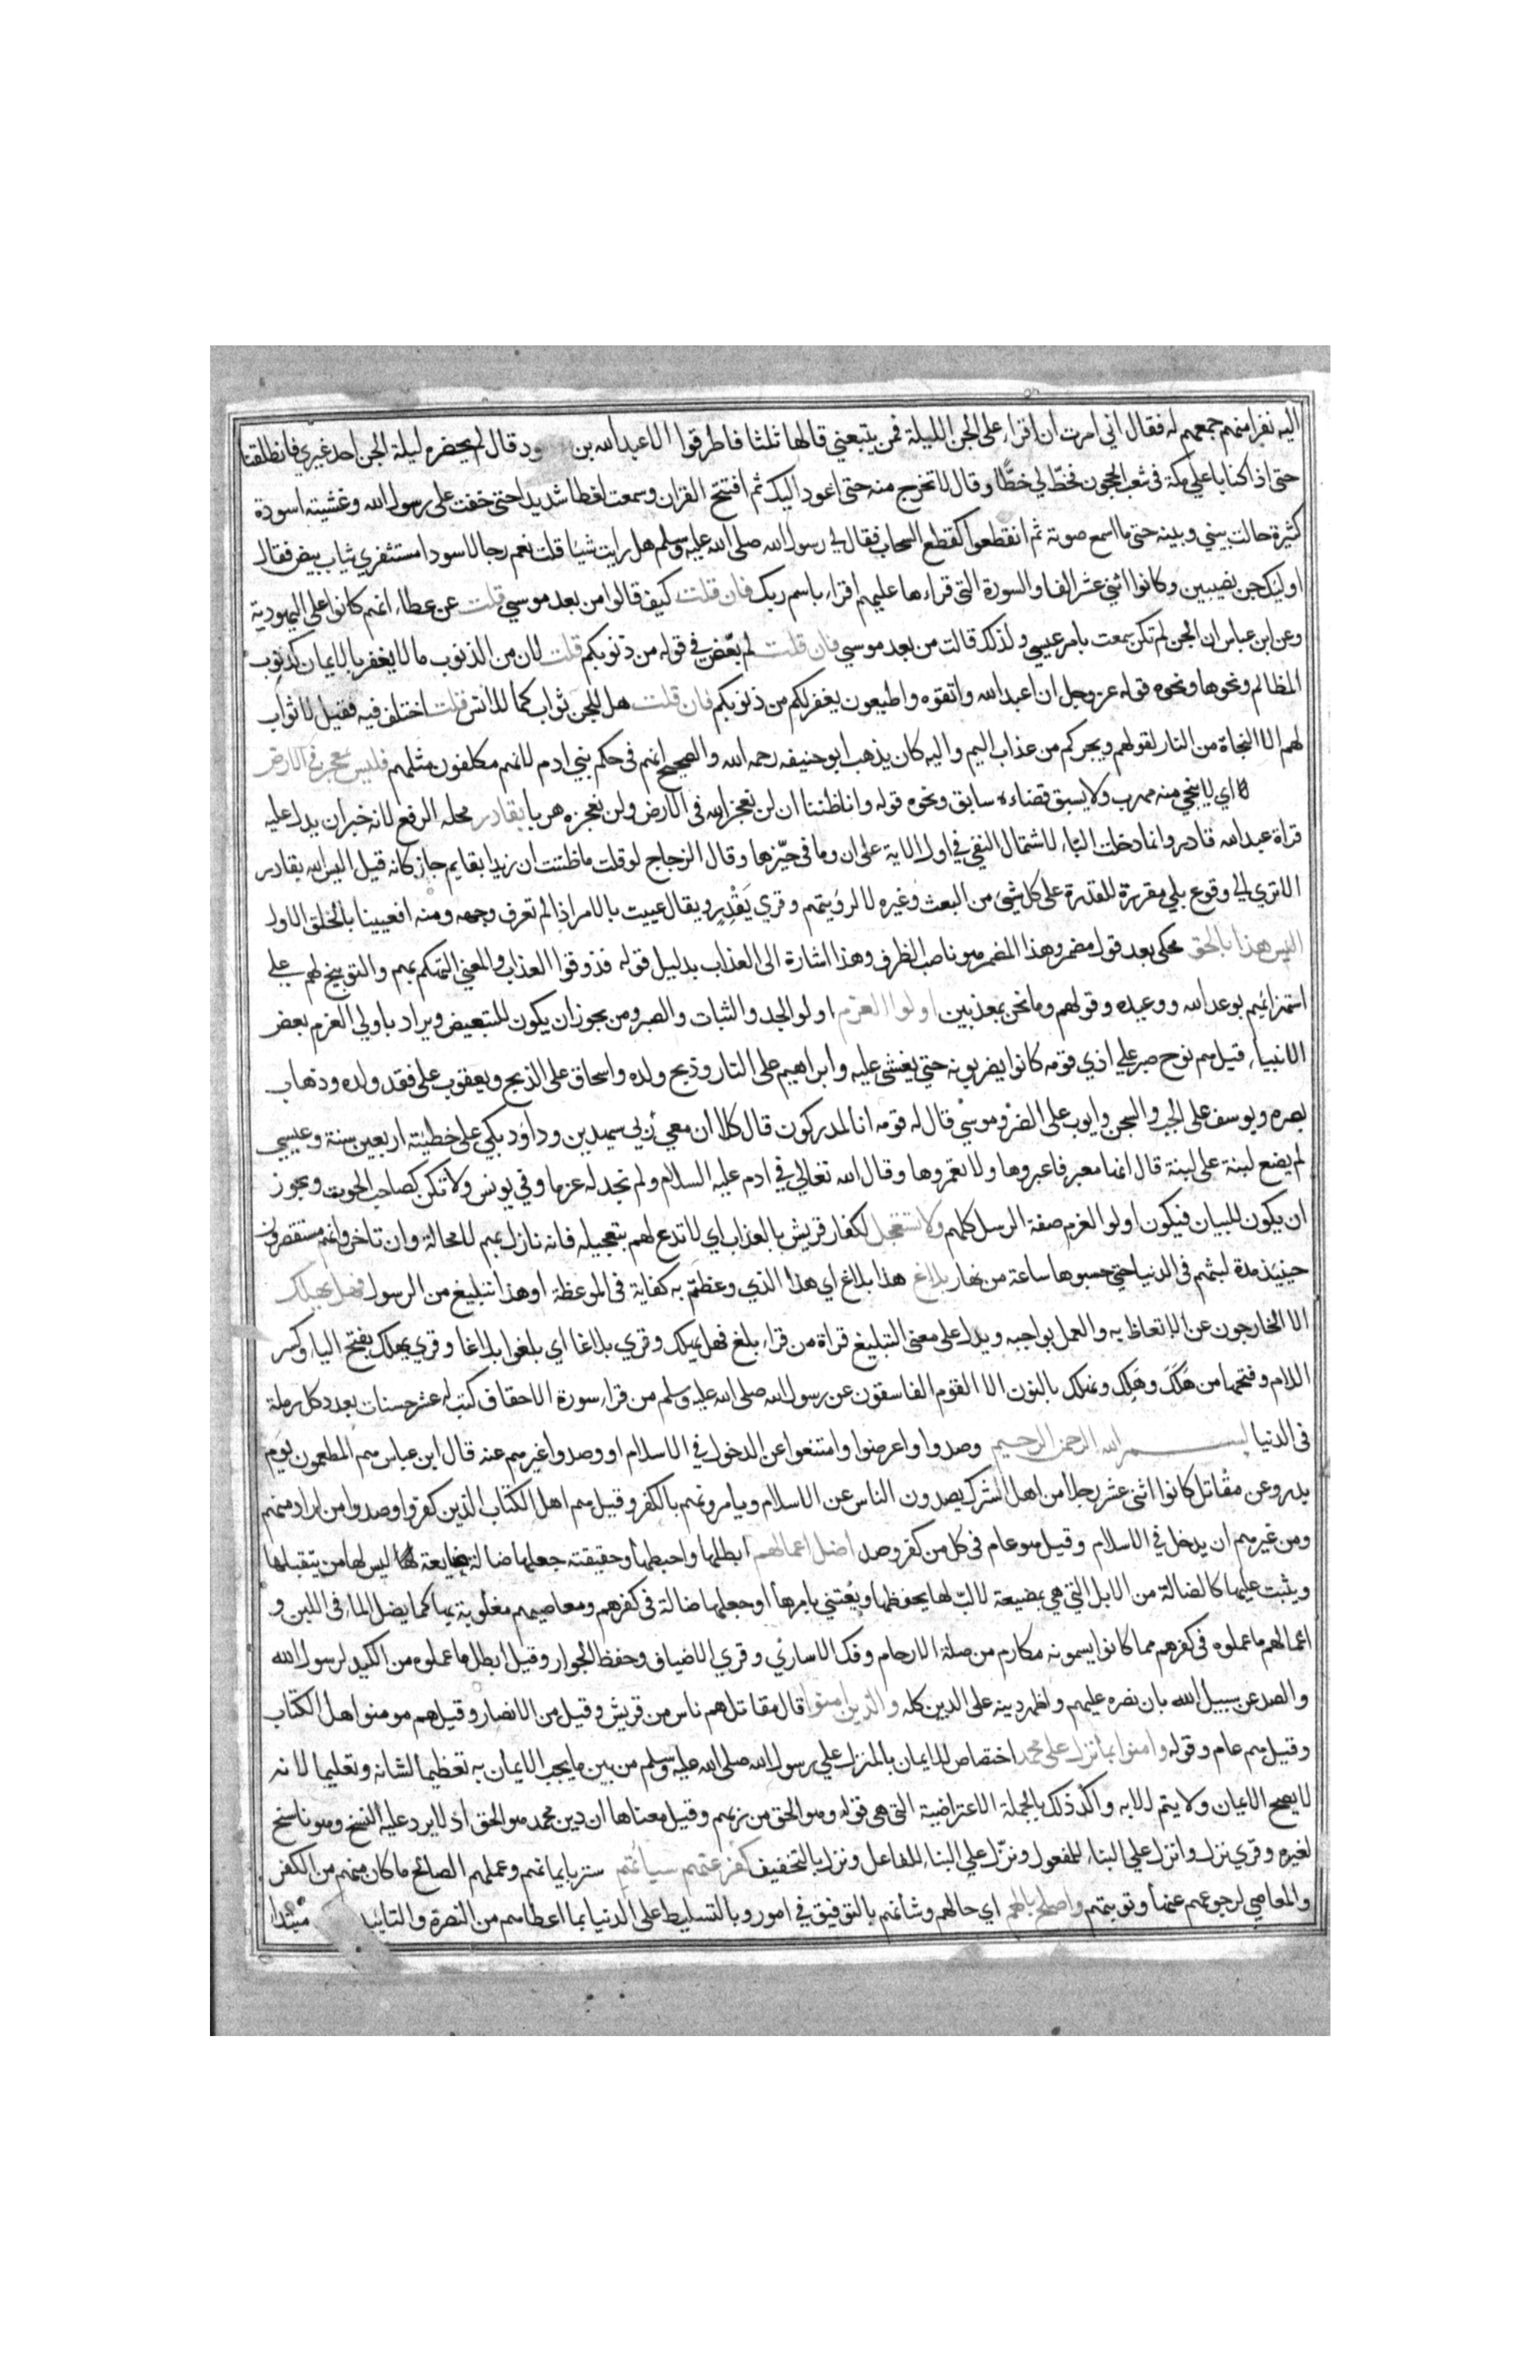 اليه نفرا منهم جمعهم له فقال اني امرت ان اقراء على الجن الليلة فمن يتبعني قالها ثلثا فاطرقوا الا عبد الله بن ود قال لم يحضره ليلة الجن احد غيري فانطلقنا
حتى اذا كنا باعلي مكة في شعب الحجون فخطّ لي خطًّا وقال لا تخرج منه حتى اعود اليك ثم افتتح القران وسمعت لغطا شديدا حتى خفت على رسول الله وغشيته اسودة
كثيرة حالت بيني وبينه حتى ما اسمع صوته ثم انقطعوا كقطع السحاب فقال لي رسول الله صلى الله عليه وسلم هل رايت شيئا قلت نعم رجالا سودا مستثفري ثياب بيض فقال
اوليك جن نصيبين وكانوا اثني عشر الفا والسورة التي قراءها عليهم اقراء باسم ربك فان قلت كيف قالوا من بعد موسي قلت عن عطاء انهم كانوا على اليهودية
وعن ابن عباس ان الجن لم تكن سمعت بامر عيسي ولذلك قالت من بعد موسي فان قلت لم بعّض في قوله من ذنوبكم قلت لان من الذنوب ما لا يغفر بالايمان كذنوب
المظالم ونحوها ونحوه قوله عز وجل ان اعبد الله واتقوه واطيعون يغفر لكم من ذنوبكم فان قلت هل للجن ثواب كما للانس قلت اختلف فيه فقيل لا ثواب
لهم الا النجاة من النار لقولهم ويجركم من عذاب اليم واليه كان يذهب ابو حنيفه رحمه الله والصحيح انهم في حكم بني ادم لانهم مكلفون مثلهم فليس بمعجز في الارض
اي لا ينجي منه مهرب ولا يسبق قضاءه سابق ونحوه قوله وانا ظننا ان لن نعجز الله في الارض ولن نعجزه هربا بقادر محله الرفع لانه خبر ان يدل عليه
قراة عبد الله قادر وانما دخلت الباء لاشتمال النفي في اول الاية على ان وما في حيّزها وقال الزجاج لو قلت ما ظننت ان زيدا بقايم جاز كانه قيل اليس الله بقادر
الا تري الي وقوع بلي مقررة للقدرة على كل شيئ من البعث وغيره لا لرؤيتهم وقري يَقْدِر ويقال عييت بالامر اذا لم تعرف وجهه ومنه افعيينا بالخلق الاول
اليس هذا بالحق محكي بعد قول مضمر وهذا المضمر هو ناصب الظرف وهذا اشارة الى العذاب بدليل قوله فذوقوا العذاب والمعني التهكم بهم والتوبيخ لهم علي
استهزائهم بوعد الله ووعيده وقولهم وما نحن بمعذبين اولوا العزم اولو الجد والثبات والصبر ومن يجوز ان يكون للتبعيض ويراد باولي العزم بعض
الانبياء قيل هم نوح صبر علي اذي قومه كانوا يضربونه حتي يغشى عليه وابراهيم على النار وذبح ولده واسحاق على الذبح ويعقوب على فقد ولده وذهاب
بصره ويوسف على الجب والسجن وايوب على الضر وموسيٰ قال له قومه انا لمدركون قال كلا ان معي ربي سيهدين وداود بكي على خطيئته اربعين سنة وعيسي
لم يضع لبنة على لبنة قال انها معبر فاعبروها ولا تعمروها وقال الله تعالي في ادم عليه السلام ولم تجد له عزما وفي يونس ولا تكن كصاحب الحوت ويجوز
ان يكون للبيان فيكون اولو العزم صفة الرسل كلهم ولا تستعجل لكفار قريش بالعذاب اي لا تدع لهم بتعجيله فانه نازل بهم لا محالة وان تاخر وانهم مستقصرون
حينيذ مدة لبثهم في الدنيا حتي حسبوها ساعة من نهار بلاغ هذا بلاغ اي هذا الذي وعظتم به كفاية في الموعظة او هذا تبليغ من الرسول فهل يهلك
الا الخارجون عن الاتعاظ به والعمل بواجبه ويدل على معنى التبليغ قراة من قراء بلغ فهل يهلك وقري بلاغا اي بلغوا بلاغا وقري يهلك بفتح الياء وكسر
اللام وفتحها من هَلَكَ وهَلِك ونهلك بالنون الا القوم الفاسقون عن رسول الله صلى الله عليه وسلم من قراء سورة الاحقاف كتب له عشر حسنات بعدد كل رملة
في الدنيا بسم الله الرحمن الرحيم وصدوا واعرضوا وامتنعوا عن الدخول في الاسلام او وصدوا غيرهم عنه قال ابن عباس هم المطعمون يوم
بدر وعن مقاتل كانوا اثني عشر رجلا من اهل الشرك يصدون الناس عن الاسلام ويامرونهم بالكفر وقيل هم اهل الكتاب الذين كفروا وصدوا من اراد منهم
ومن غيرهم ان يدخل في الاسلام وقيل هو عام في كل من كفر وصد اضل اعمالهم ابطلها واحبطها وحقيقته جعلها ضالة ضايعة ليس لها من يتقبلها
ويثبت عليها كالضالة من الابل التي هي بمضيعة لا ربّ لها يحفظها ويُعتني بامرها او جعلها ضالة في كفرهم ومعاصيهم مغلوبة بها كما يضل الماء في اللبن و
اعمالهم ما عملوه في كفرهم مما كانوا يسمونه مكارم من صلة الارحام وفك الاساري وقري الاضياف وحفظ الجوار وقيل ابطل ما عملوه من الكيد لرسول الله
والصد عن سبيل الله بان نصره عليهم واظهر دينه على الدين كله والذين امنوا قال مقاتل هم ناس من قريش وقيل من الانصار وقيل هم مومنوا اهل الكتاب
وقيل هم عام وقوله وامنوا بما نزل على محمد اختصاص للايمان بالمنزل علي رسول الله صلى الله عليه وسلم من بين ما يجب الايمان به تعظيما لشانه وتعليما لانه
لا يصح الايمان ولا يتم الا به واكّد ذلك بالجملة الاعتراضية التي هي قوله وهو الحق من ربهم وقيل معناها ان دين محمد هو الحق اذ لا يرد عليه النسخ وهو ناسخ
لغيره وقري نزل وانزل علي البناء للمفعول ونزّل علي البناء للفاعل ونزل بالتخفيف كفر عنهم سياتهم ستر بايمانهم وعملهم الصالح ما كان منهم من الكفر
والمعاصي لرجوعهم عنها وتوبتهم واصلح بالهم اي حالهم وشأنهم بالتوفيق في امور وبالتسليط على الدنيا بما اعطاهم من النصرة والتائيد مبتدا